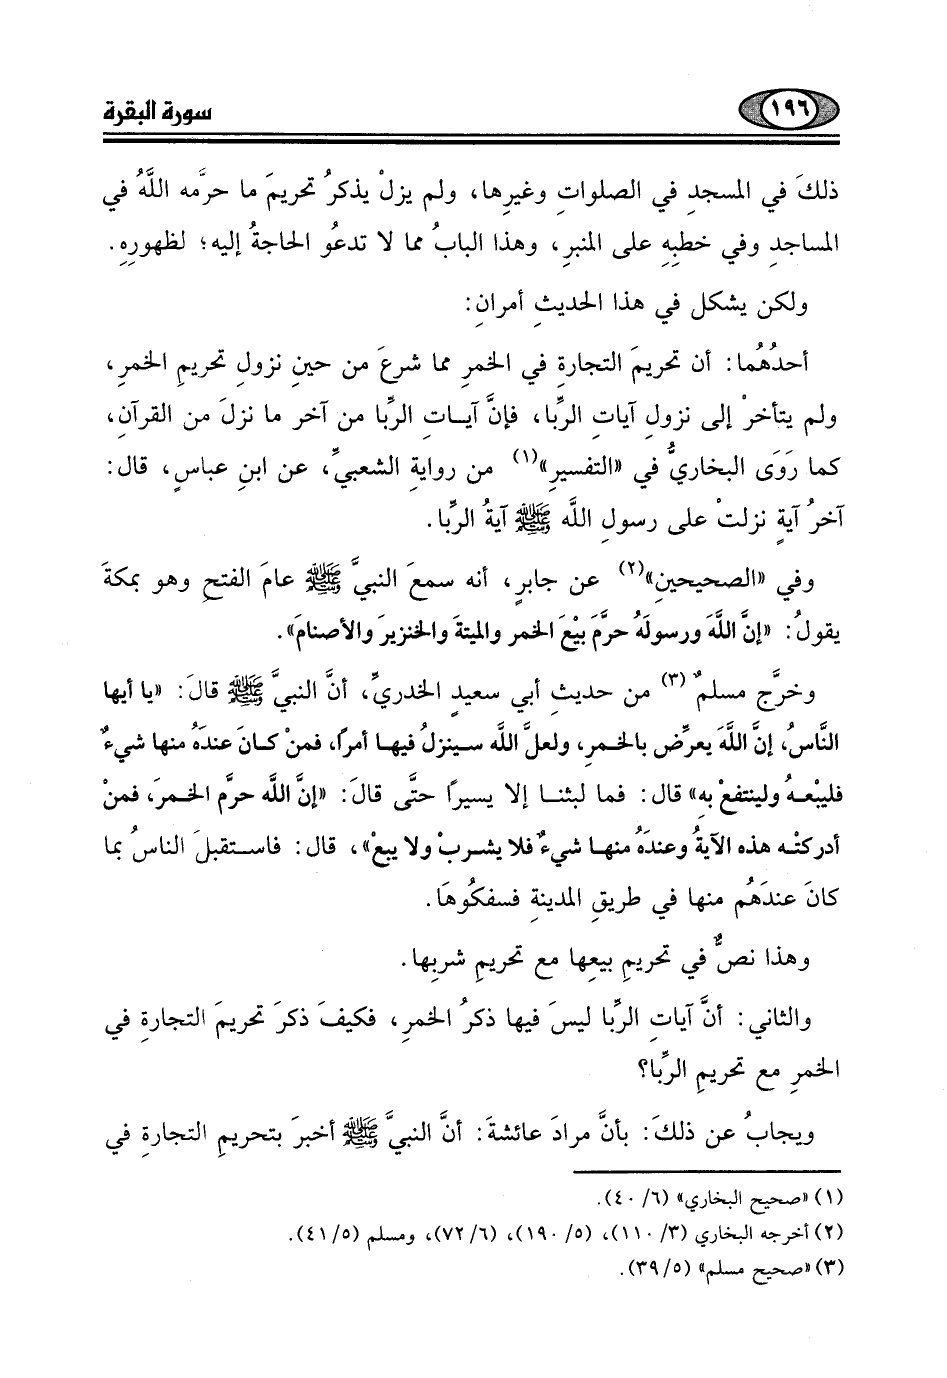 ١٩٦
سورة البقرة
ذلكَ في المسجدِ في الصلواتِ وغيرِها، ولم يزلْ يذكرُ تحريمَ ما حرَّمه اللَّهُ في
المساجدِ وفي خطبِهِ على المنبرِ، وهذا البابُ مما لا تدعُو الحاجةُ إليه؛ لظهورِهِ.
ولكن يشكل في هذا الحديثِ أمرانِ:
أحدُهُما: أن تحريمَ التجارةِ في الخمرِ مما شرعَ من حينِ نزولِ تحريمِ الخمرِ،
ولم يتأخرْ إلى نزولِ آياتِ الرِّبا، فإنَّ آيـاتِ الرِّبا من آخر ما نزلَ من القرآنِ،
كما رَوَى البخاريُّ في «التفسيرِ»(١) من روايةِ الشعبيِّ، عن ابنِ عباسٍ، قال:
آخرُ آيةٍ نزلتْ على رسولِ اللَّه ﷺ آيةُ الرِّبا.
وفي «الصحيحينِ»(٢) عن جابرٍ، أنه سمعَ النبيَّ ﷺ عامَ الفتحِ وهو بمكةَ
يقولُ: «إنَّ اللَّهَ ورسولَهُ حرَّمَ بيْعَ الخمر والميتةَ والخنزيرَ والأصنامَ».
وخرَّج مسلمٌ(٣) من حديثِ أبي سعيدٍ الخدريِّ، أنَّ النبيَّ ﷺ قالَ: «يا أيها
النَّاسُ، إنَّ اللَّهَ يعرِّض بالخـمرِ، ولعلَّ الله سـينزلُ فيهـا أمرًا، فمنْ كـانَ عندَهُ منها شيءٌ
فليبْعـهُ ولينتفعْ بهِ» قال: فما لبثنـا إلا يسيرًا حتَّى قالَ: «إنَّ اللَّه حرَّم الخـمرَ، فمنْ
أدركتْـه هذه الآيةُ وعندَهُ منهـا شيءٌ فلا يشربْ ولا يبعْ»، قال: فاسـتقبلَ الناسُ بما
كانَ عندَهُم منها في طريقِ المدينةِ فسفكُوهَا.
وهذا نصٌّ في تحريمِ بيعِها مع تحريمِ شربِها.
والثاني: أنَّ آياتِ الرِّبا ليسَ فيها ذكرُ الخمرِ، فكيفَ ذكرَ تحريمَ التجارةِ في
الخمرِ مع تحريمِ الرِّبا؟
ويجابُ عن ذلكَ: بأنَّ مرادَ عائشةَ: أنَّ النبيَّ ﷺ أخبرَ بتحريمِ التجارةِ في
(١) «صحيح البخاري» (٦/ ٤٠).
(٢) أخرجه البخاري (٣/ ١١٠)، (٥/ ١٩٠)، (٦/ ٧٢)، ومسلم (٥/ ٤١).
(٣) «صحيح مسلم» (٥/ ٣٩).